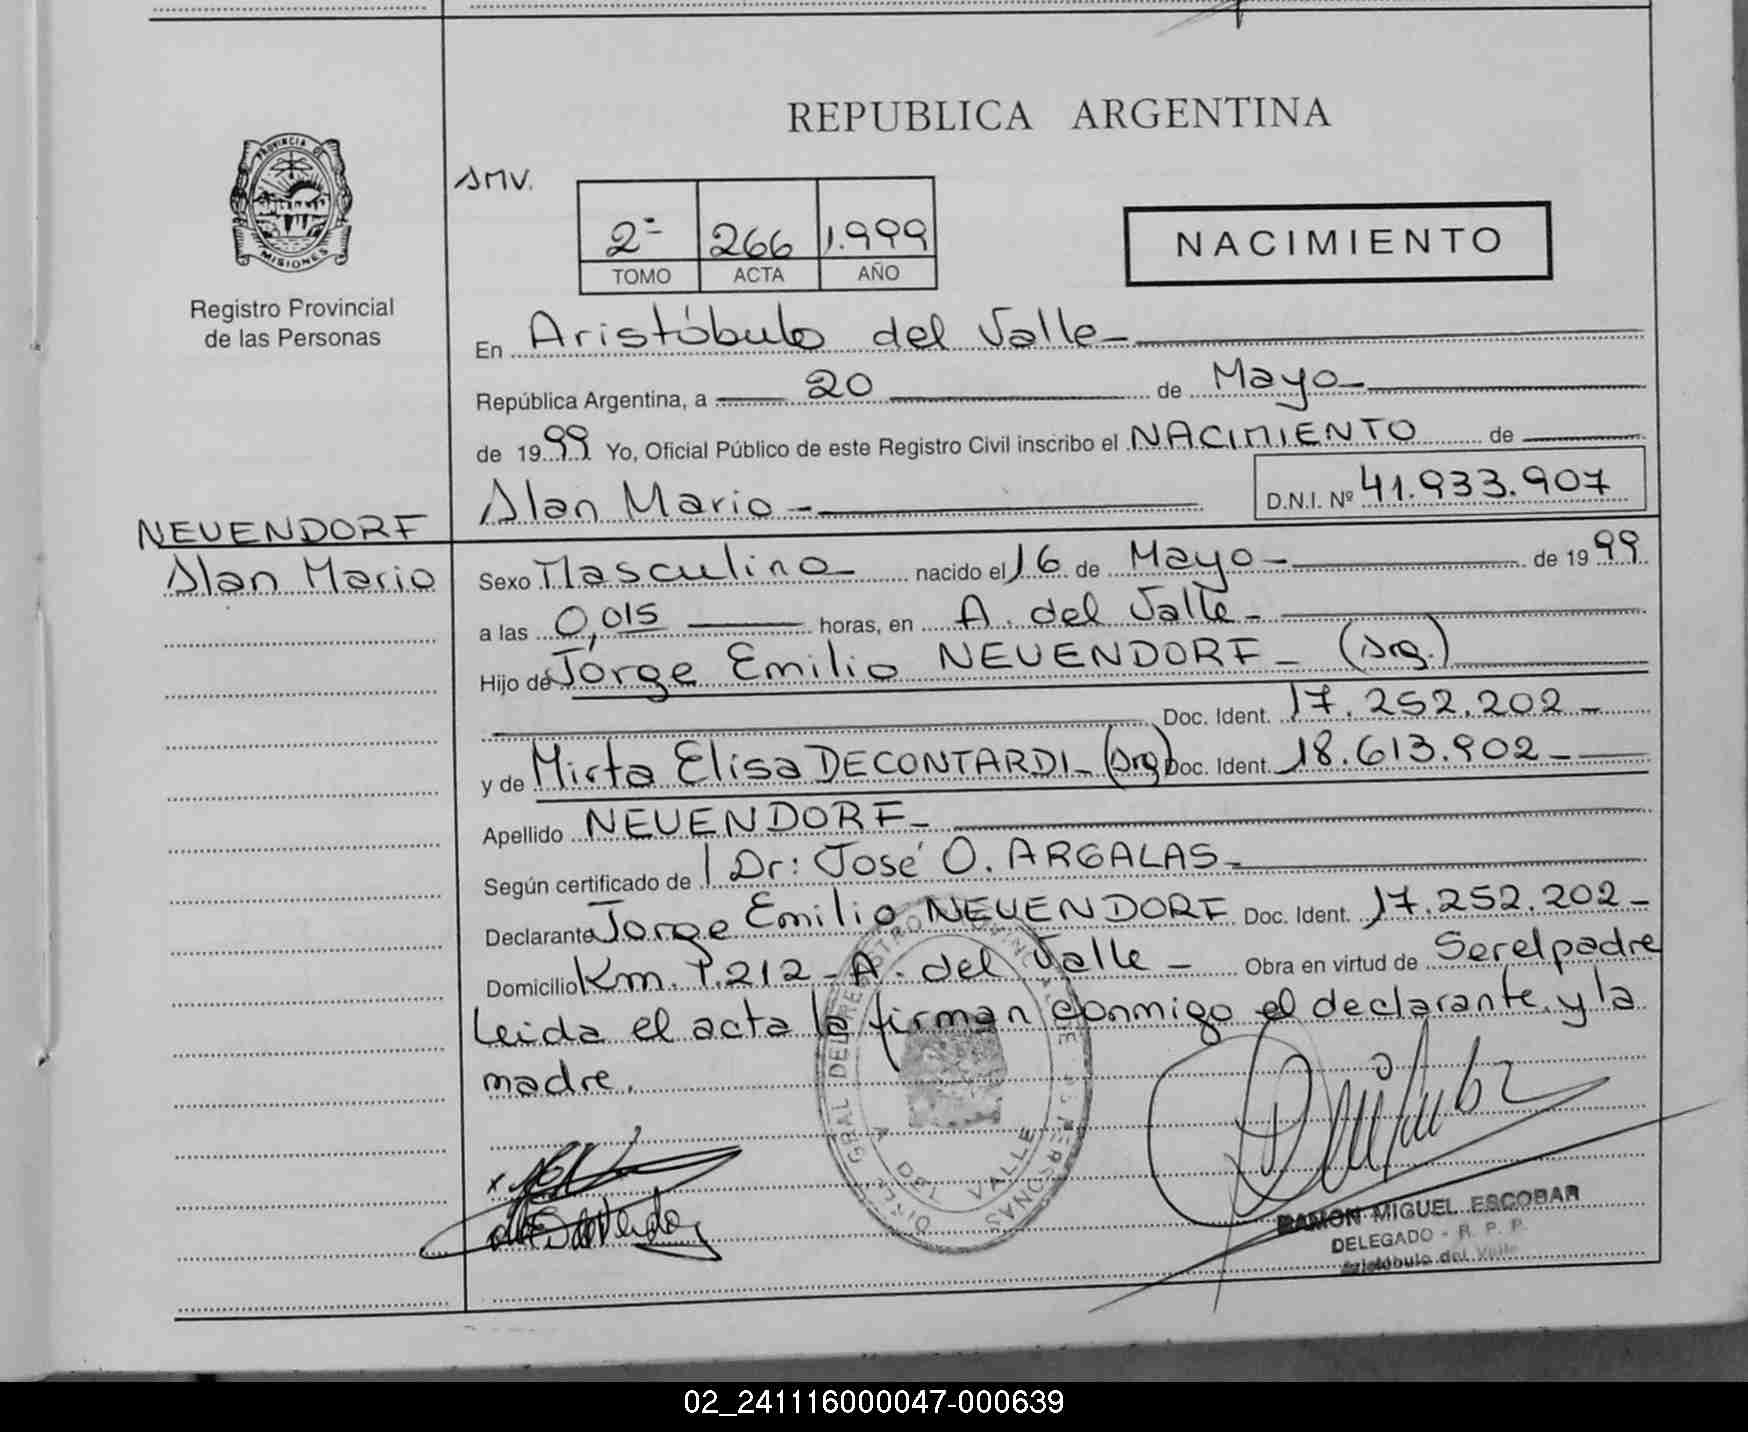 REPUBLICA ARGENTINA
PROVINCIA DE
MISIONES
Registro Provincial
de las Personas
SMV.
2= 266 1.999
TOMO ACTA AÑO
NACIMIENTO
En Aristóbulo del Valle-
República Argentina, a 20 de Mayo-
de 1999 Yo, Oficial Público de este Registro Civil inscribo el NACIMIENTO de
Alan Mario - D.N.I. Nº 41.933.907
NEUENDORF
Alan Mario
Sexo Masculino nacido el 16 de Mayo- de 1999
a las 0,015 horas, en A. del Valle-
Hijo de Jorge Emilio NEUENDORF- (Arg.)
Doc. Ident. 17.252.202-
y de Mirta Elisa DECONTARDI- (Arg) Doc. Ident. 18.613.902-
Apellido NEUENDORF-
Según certificado de Dr: José O. ARGALAS-
Declarante Jorge Emilio NEUENDORF Doc. Ident. 17.252.202-
Domicilio Km. 1.212-A. del Valle- Obra en virtud de Ser el padre
Leida el acta la firman conmigo el declarante y la
madre.
A DEL VALLE
RAMON MIGUEL ESCOBAR
DELEGADO - R. P. P.
Aristóbulo del Valle
02_241116000047-000639